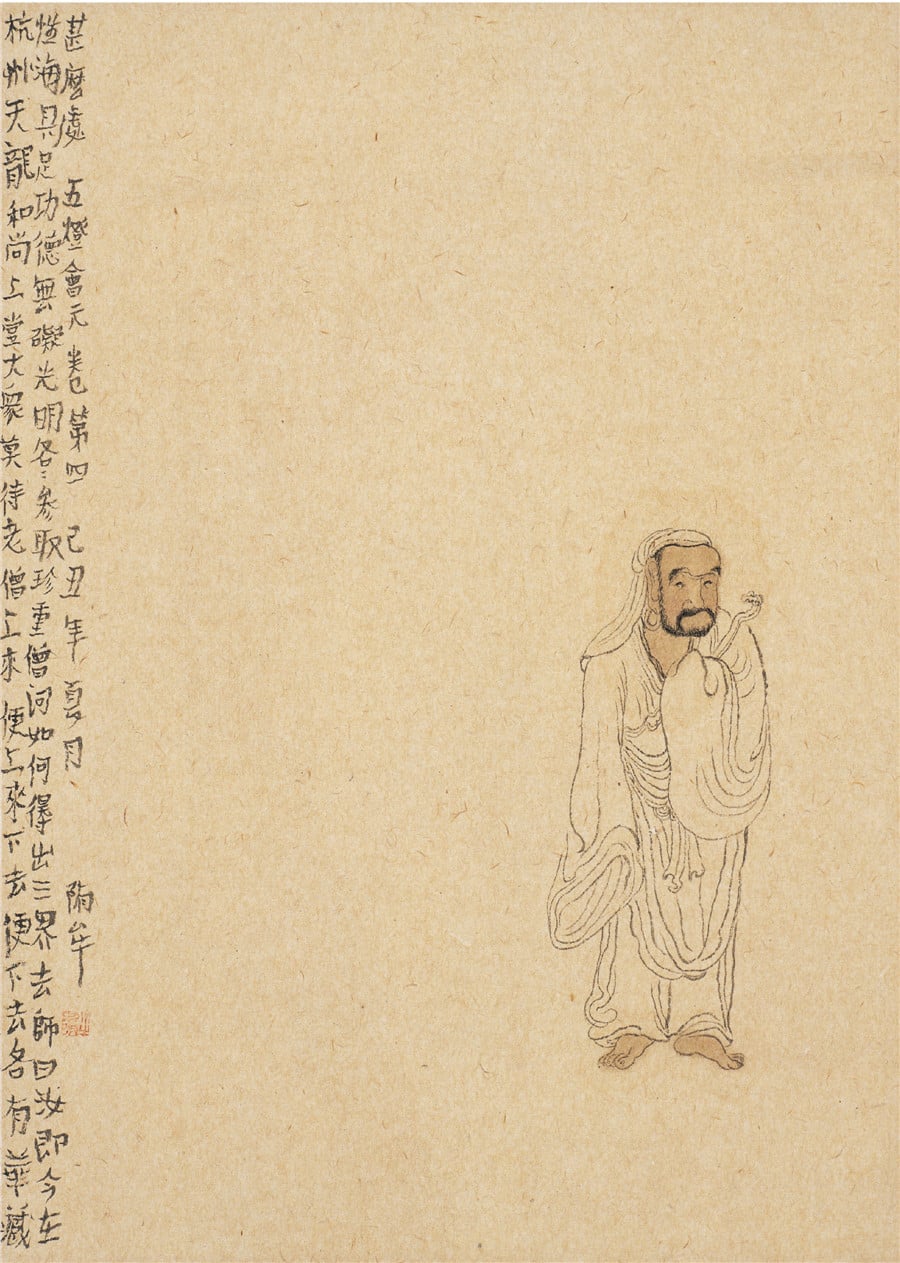 杭州天龍和尚上堂大衆莫待老僧上來便上來下去便下去各有華藏
性海具足功德無礙光明各〻參取珍重僧问如何得出三界去師曰汝即今在
甚麽處 五燈會元卷第四 己丑年夏月 陏牟